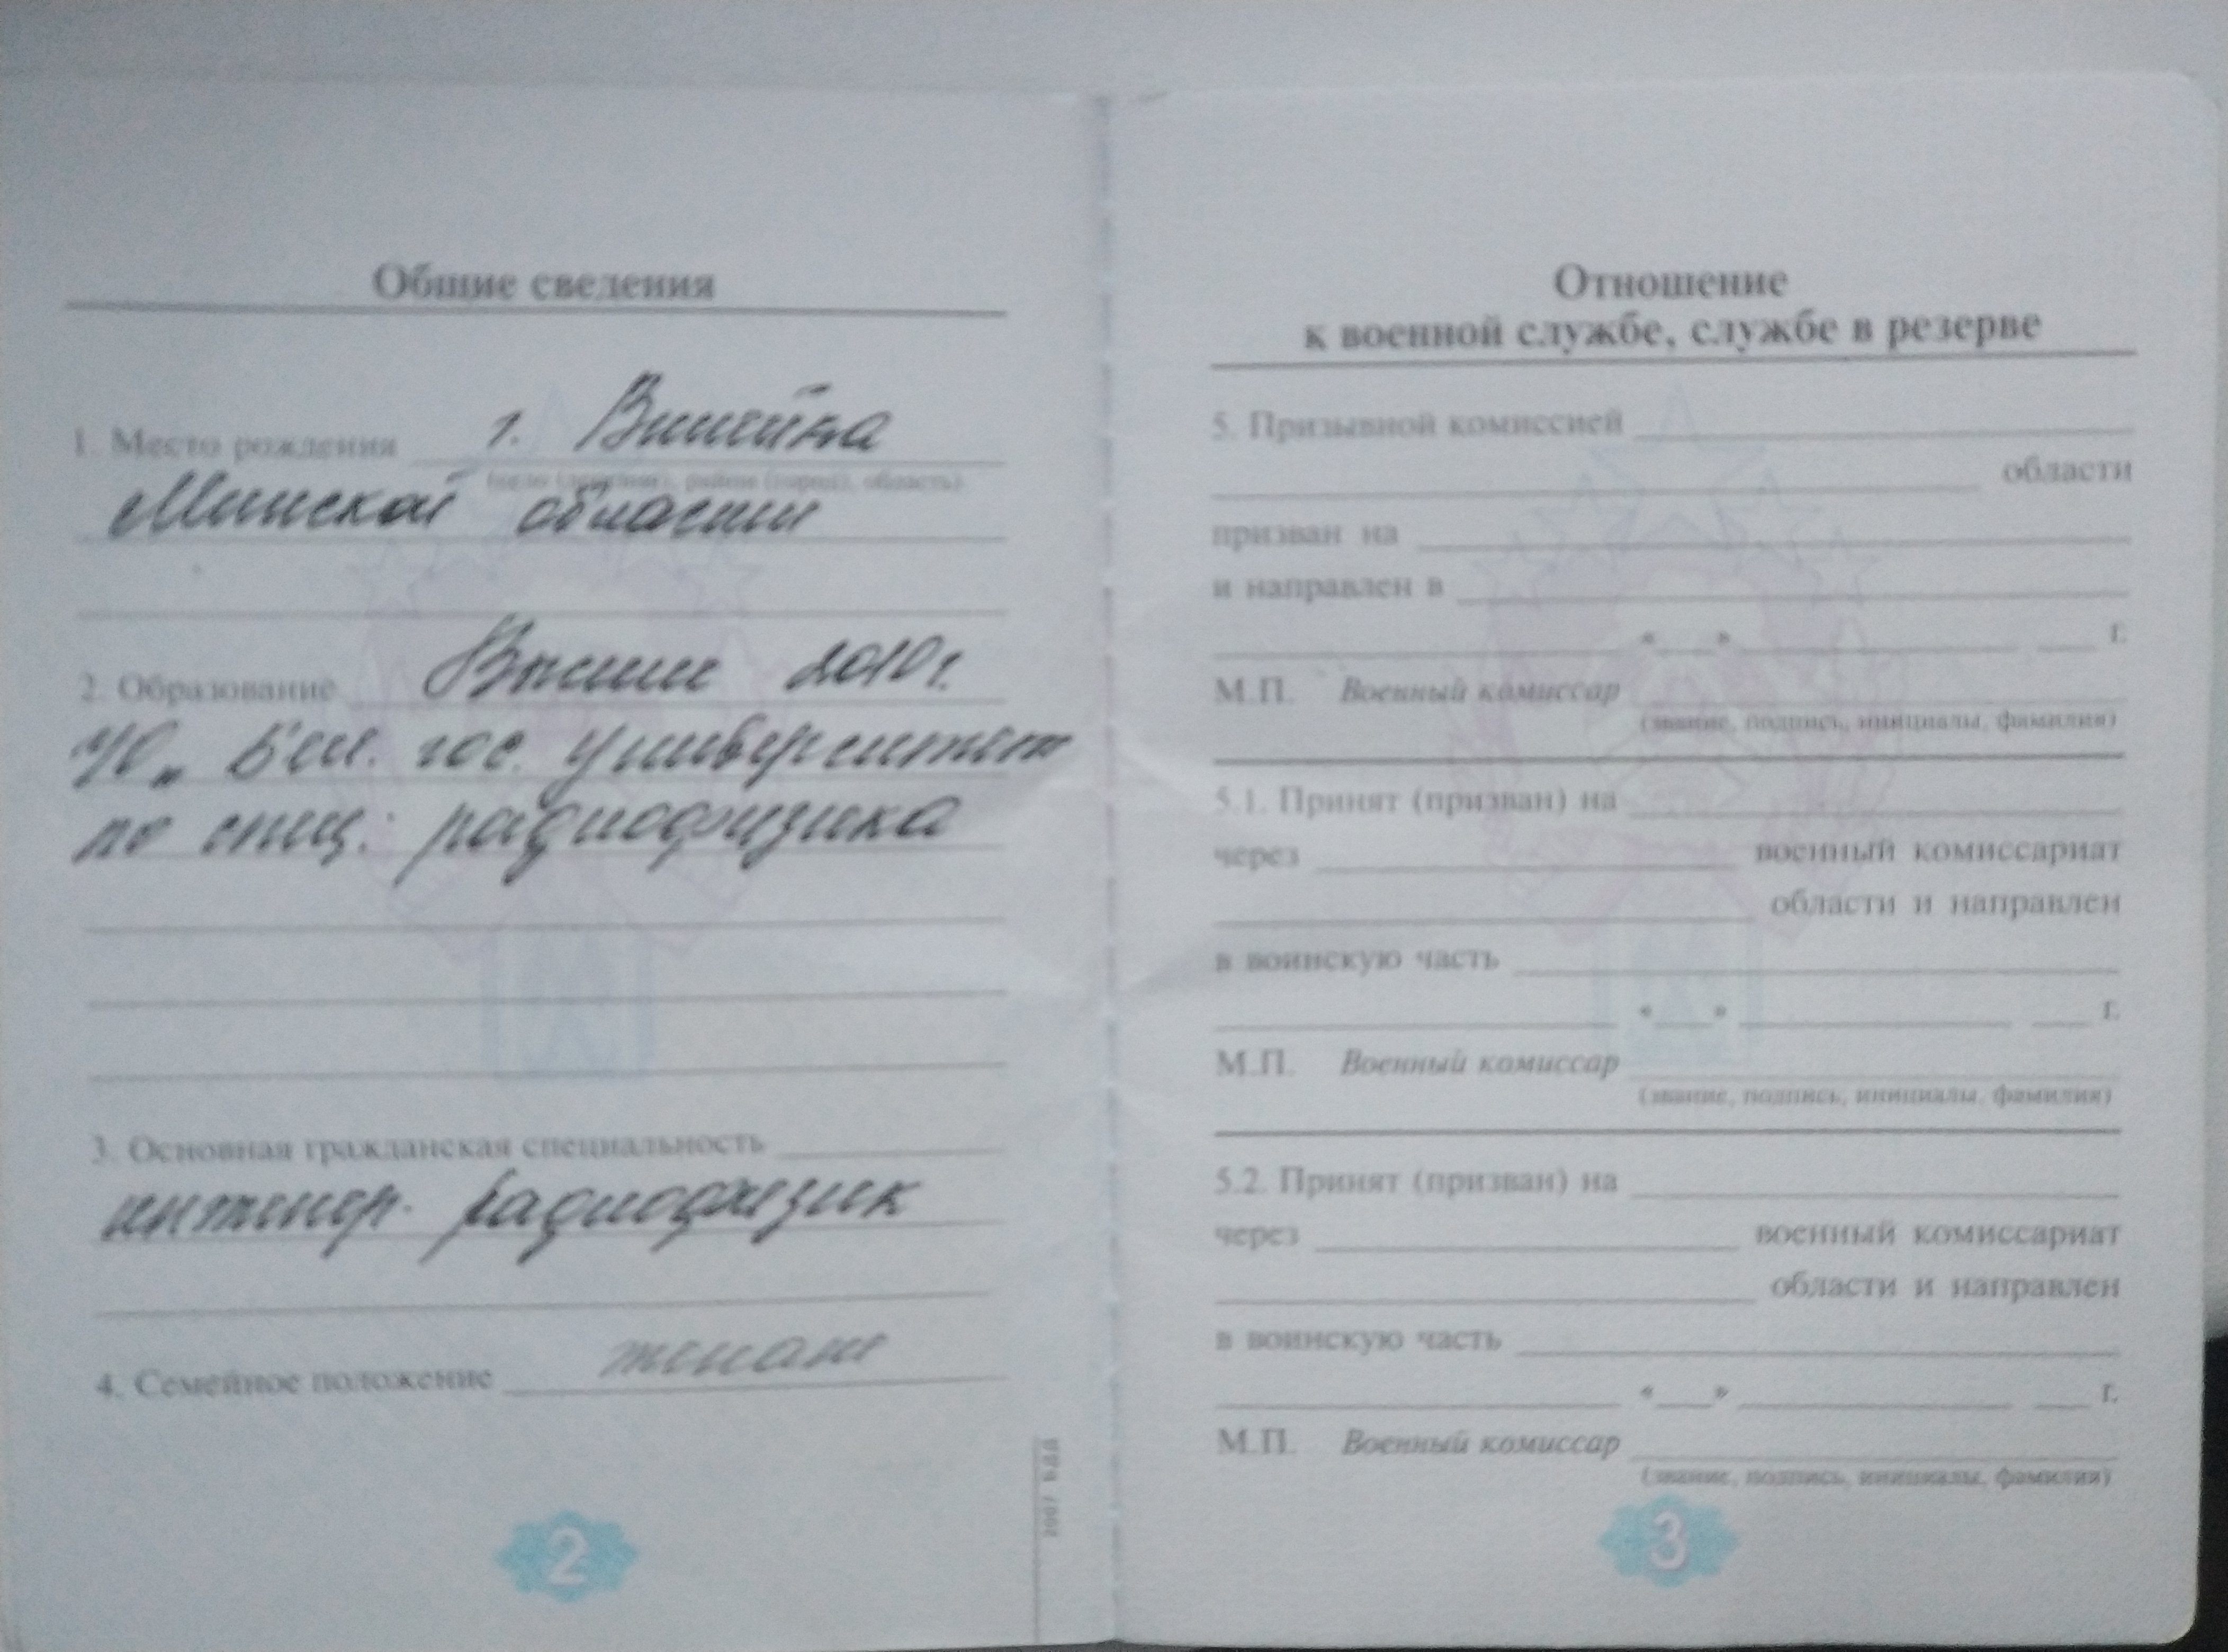 Общие сведения
1. Место рождения г. Вилейка
(село (деревня), район (город), область)
Минской области
2. Образование Высшее 2010 г.
УО „Бел. гос. университет
по спец.: радиофизика
3. Основная гражданская специальность
инженер. радиофизик
4. Семейное положение женат
2
Отношение
к военной службе, службе в резерве
5. Призывной комиссией
области
призван на
и направлен в
« » г.
М.П. Военный комиссар
(звание, подпись, инициалы, фамилия)
5.1. Принят (призван) на
через военный комиссариат
области и направлен
в воинскую часть
« » г.
М.П. Военный комиссар
(звание, подпись, инициалы, фамилия)
5.2. Принят (призван) на
через военный комиссариат
области и направлен
в воинскую часть
« » г.
М.П. Военный комиссар
(звание, подпись, инициалы, фамилия)
3